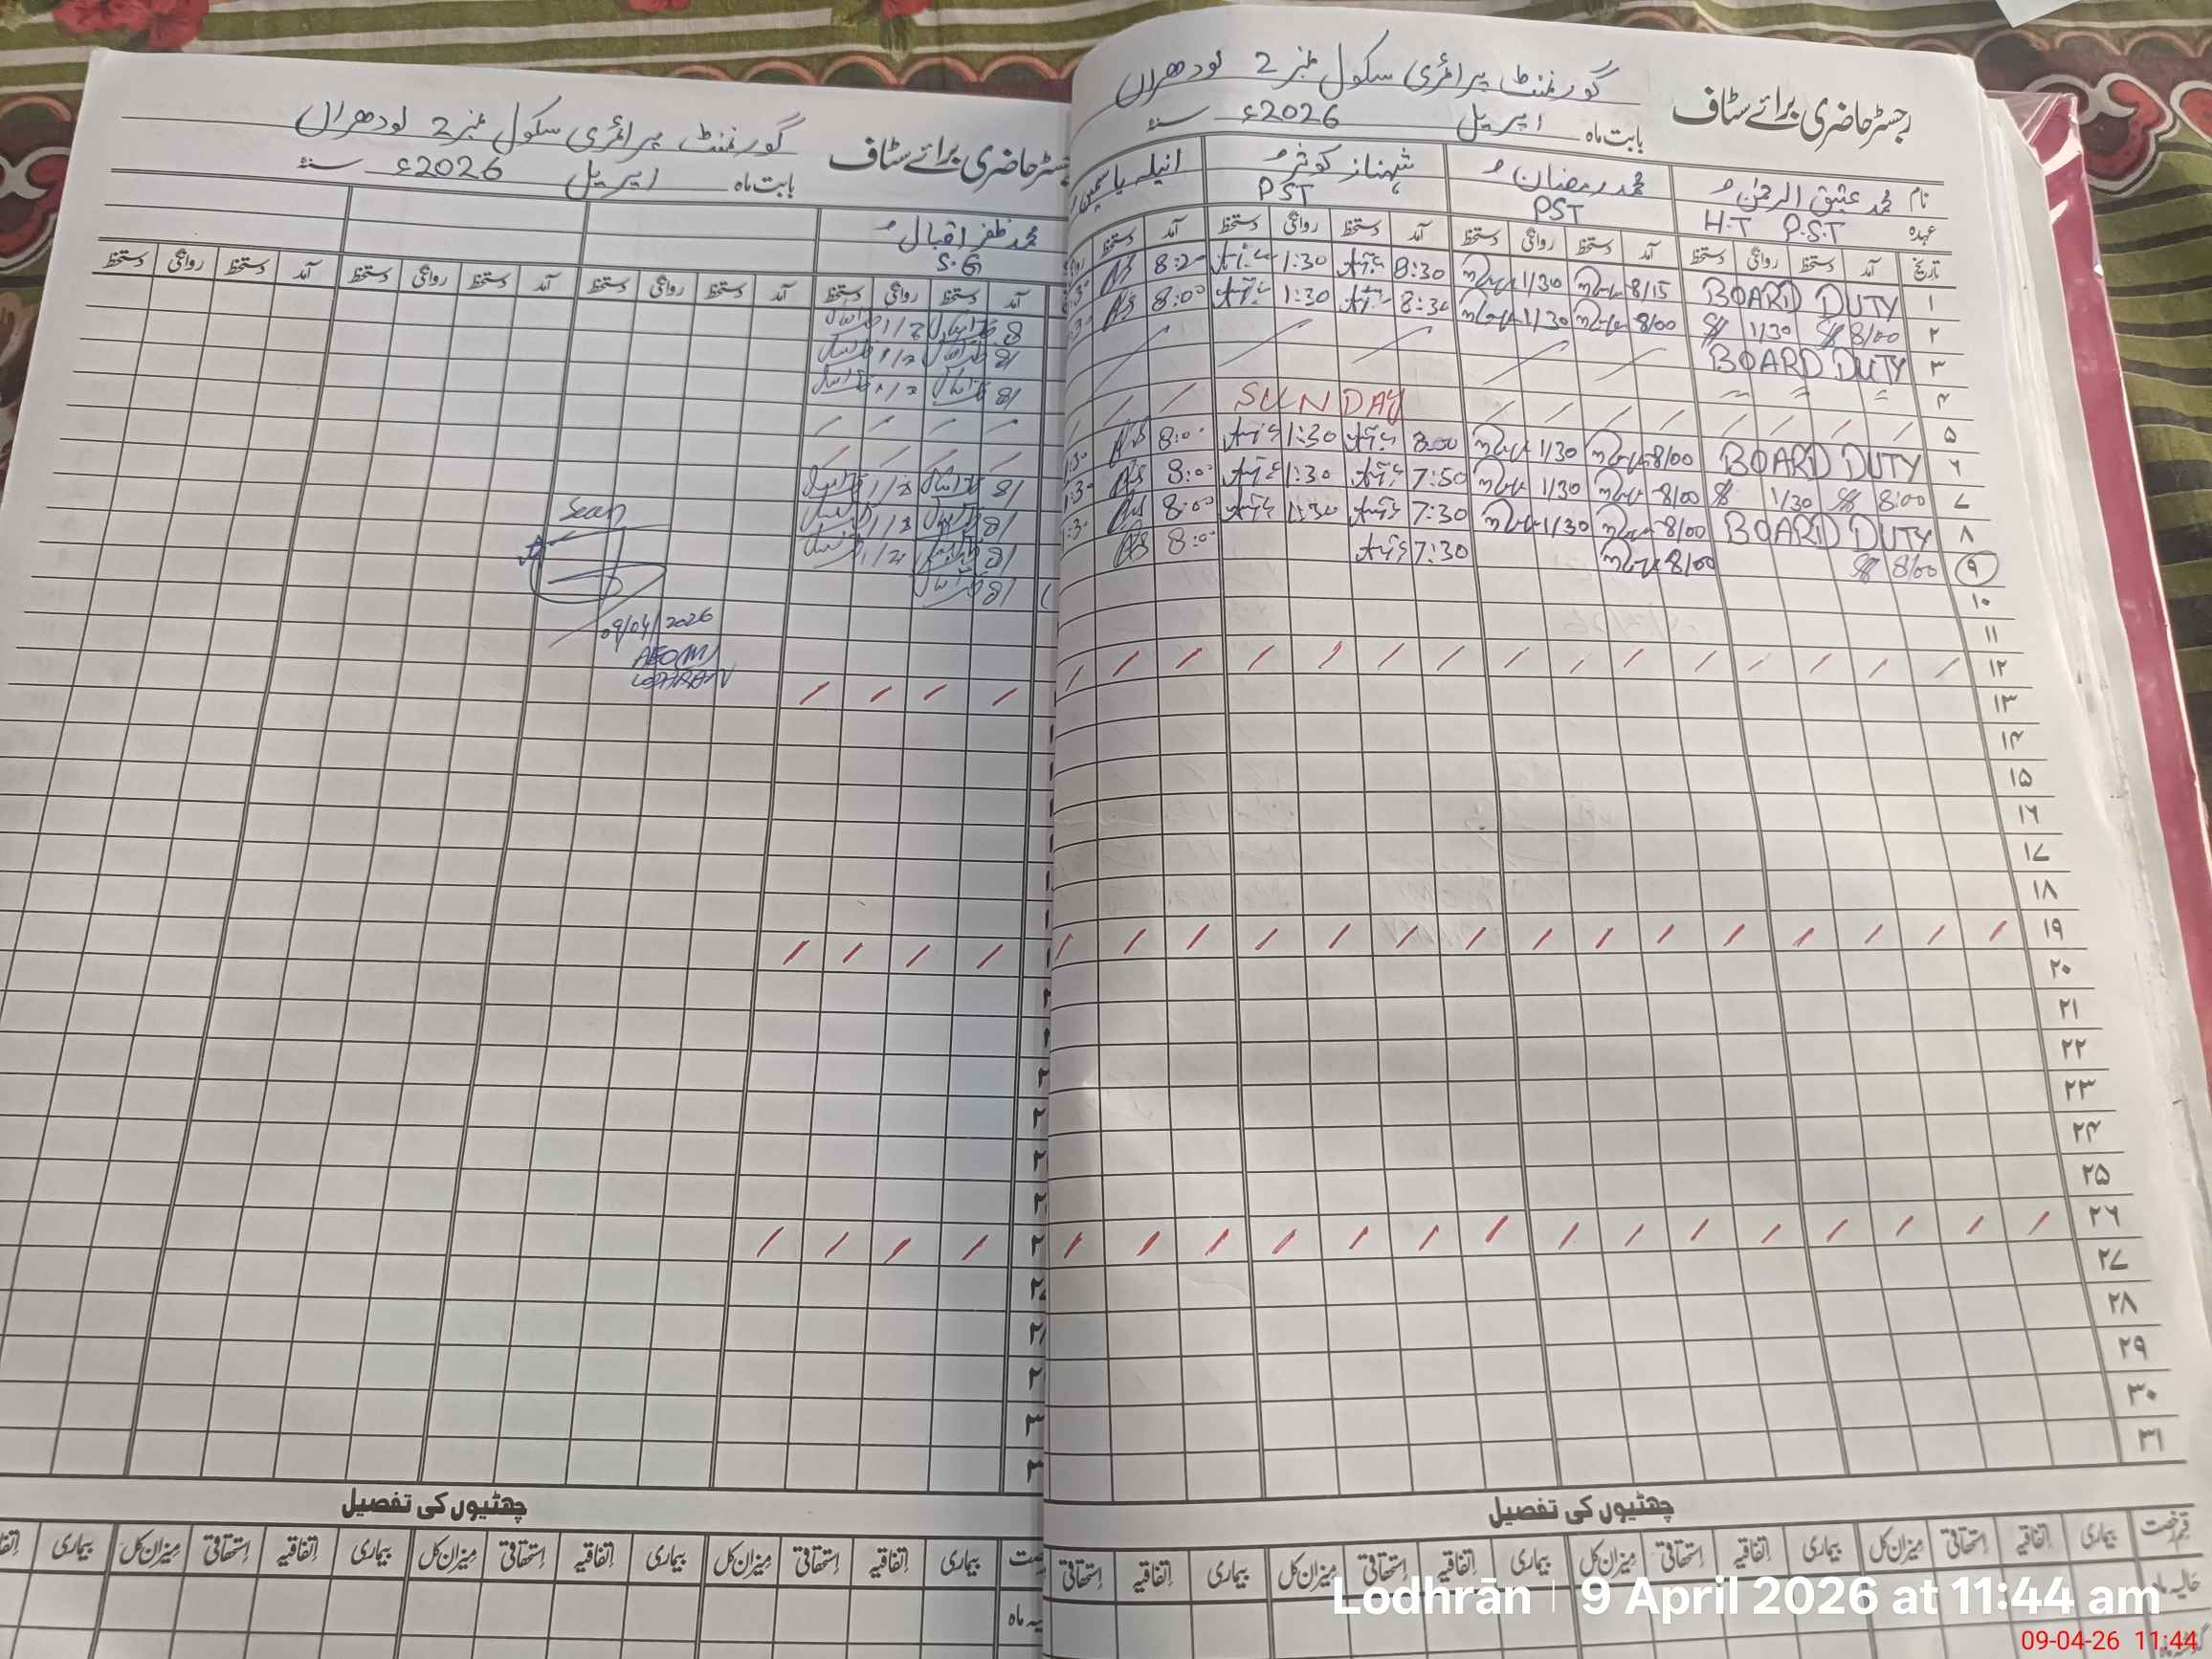 رجسٹر حاضری برائے سٹاف گورنمنٹ پرائمری سکول نمبر 2 لودھراں
بابت ماہ اپریل 2026ء سنہ
نام محمد عتیق الرحمٰن محمد رمضان شہناز کوثر انیلہ یاسمین
عہدہ H.T P.S.T PST PST
تاریخ آمد دستخط روانگی دستخط آمد دستخط روانگی دستخط آمد دستخط روانگی دستخط آمد دستخط
۱ BOARD DUTY 8/15 1/30 8:30 1:30 8:20
۲ 8/00 1/30 8/00 1/30 8:30 1:30 8:00
۳ BOARD DUTY
۴ = = =
۵ SUNDAY
۶ BOARD DUTY 8/00 1/30 8:00 1:30 8:00
۷ 8:00 1/30 8/00 1/30 7:50 1:30 8:00
۸ BOARD DUTY 8/00 1/30 7:30 1:30 8:00
۹ 8/00 8/00 7:30 8:00
۱۰
۱۱
۱۲
۱۳
۱۴
۱۵
۱۶
۱۷
۱۸
۱۹
۲۰
۲۱
۲۲
۲۳
۲۴
۲۵
۲۶
۲۷
۲۸
۲۹
۳۰
۳۱
چھٹیوں کی تفصیل
بیماری اتفاقیہ استحقاقی میزان کل بیماری اتفاقیہ استحقاقی میزان کل بیماری اتفاقیہ استحقاقی میزان کل بیماری اتفاقیہ استحقاقی
حالیہ ماہ
رجسٹر حاضری برائے سٹاف گورنمنٹ پرائمری سکول نمبر 2 لودھراں
بابت ماہ اپریل 2026ء سنہ
محمد ظفر اقبال
S.G
آمد دستخط روانگی دستخط آمد دستخط روانگی دستخط آمد دستخط روانگی دستخط آمد دستخط روانگی دستخط
Seen
09/04/2026
AEO(M)
LODHRAN
چھٹیوں کی تفصیل
بیماری اتفاقیہ استحقاقی میزان کل بیماری اتفاقیہ استحقاقی میزان کل بیماری اتفاقیہ استحقاقی میزان کل بیماری
Lodhrān | 9 April 2026 at 11:44 am
09-04-26 11:44